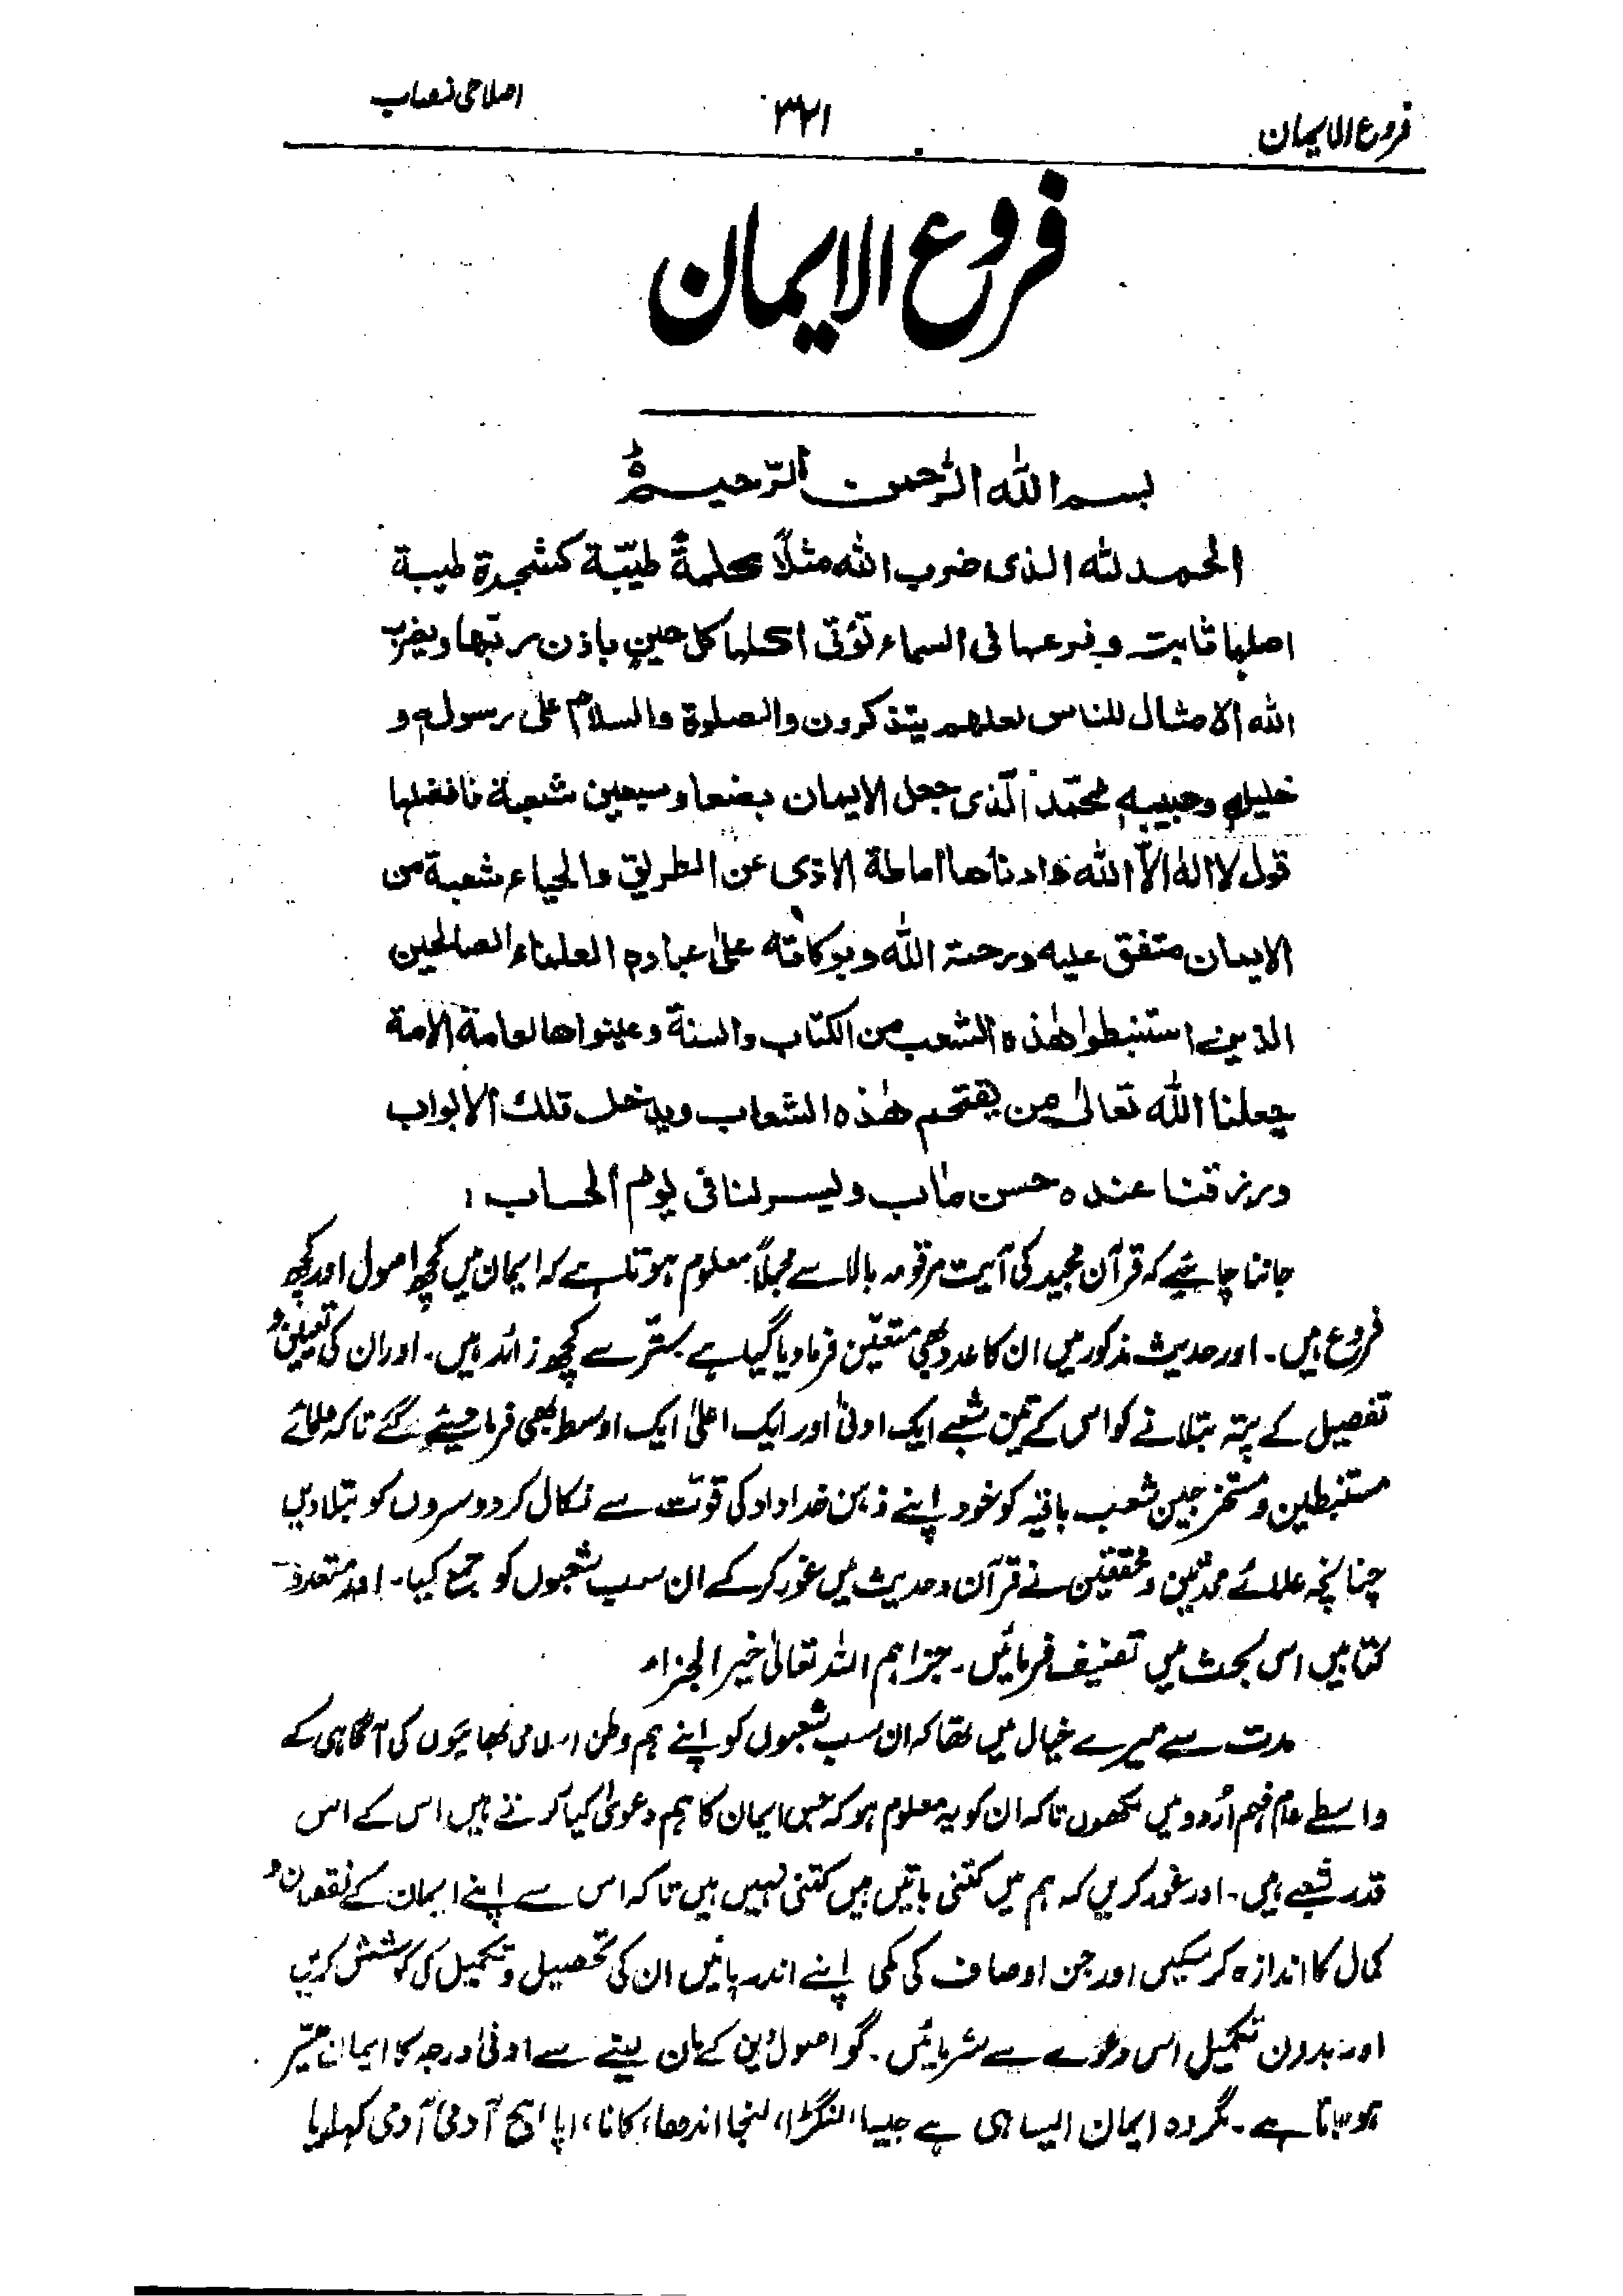 فروع الایمان ۳۲۱ اصلاحی نصاب
فروع الایمان
بسم اللہ الرّحمن الرّحیم
الحمد للہ الذی ضرب اللہ مثلاً کلمةً طیّبة کشجرة طیبة
اصلها ثابت وفرعها فی السماء تؤتی اکلها کل حین باذن ربها ویضرب
اللہ الامثال للناس لعلهم یتذکرون والصلوة والسلام علی رسوله و
خلیله وحبیبه محمّد الّذی جعل الایمان بضعا وسبعین شعبة فافضلها
قول لا اله الّا اللہ وادناها اماطة الاذی عن الطریق والحیاء شعبة من
الایمان متفق علیه ورحمة اللہ وبرکاته علیٰ عباده العلماء الصالحین
الذین استنبطوا هٰذه الشعب من الکتاب والسنة وعینواها لعامة الامة
جعلنا اللہ تعالیٰ من یقتحم هٰذه الشعاب ویدخل تلك الابواب
ورزقنا عنده حسن ماٰب ویسر لنا فی یوم الحساب :
جاننا چاہئیے کہ قرآن مجید کی آیت مرقومہ بالا سے مجملاً معلوم ہوتا ہے کہ ایمان میں کچھ اصول اور کچھ
فروع ہیں۔ اور حدیث مذکور میں ان کا عدد بھی متعیّن فرما دیا گیا ہے ستّر سے کچھ زائد ہیں۔ اور ان کی تعیین و
تفصیل کے پتہ بتلانے کو اس کے تین شعبے ایک ادنیٰ اور ایک اعلیٰ ایک اوسط بھی فرما دیئے گئے تاکہ علمائے
مستنبطین و مستخرجین شعب باقیہ کو خود اپنے ذہن خداداد کی قوّت سے نکال کر دوسروں کو بتلا دیں
چنانچہ علمائے محدثین و محققین نے قرآن و حدیث میں غور کر کے ان سب شعبوں کو جمع کیا۔ اور متعدد
کتابیں اس بحث میں تصنیف فرمائیں۔ جزاہم اللہ تعالیٰ خیر الجزاء
مدت سے میرے خیال میں تھا کہ ان سب شعبوں کو اپنے ہم وطن اسلامی بھائیوں کی آگاہی کے
واسطے عام فہم اُردو میں لکھوں تاکہ ان کو یہ معلوم ہو کہ جس ایمان کا ہم دعویٰ کیا کرتے ہیں اس کے اس
قدر شعبے ہیں۔ اور غور کریں کہ ہم میں کتنی باتیں ہیں کتنی نہیں ہیں تاکہ اس سے اپنے ایمان کے نقصان و
کمال کا اندازہ کر سکیں اور جن اوصاف کی کمی اپنے اندر پائیں ان کی تحصیل و تکمیل کی کوشش کریں
اور بدون تکمیل اس دعوے سے شرمائیں۔ گو اصول دین کے مان لینے سے ادنیٰ درجہ کا ایمان میسّر
ہو جاتا ہے۔ مگر وہ ایمان ایسا ہی ہے جیسا، لنگڑا، لنجا اندھا، کانا، اپاہج آدمی آدمی کہلاتا